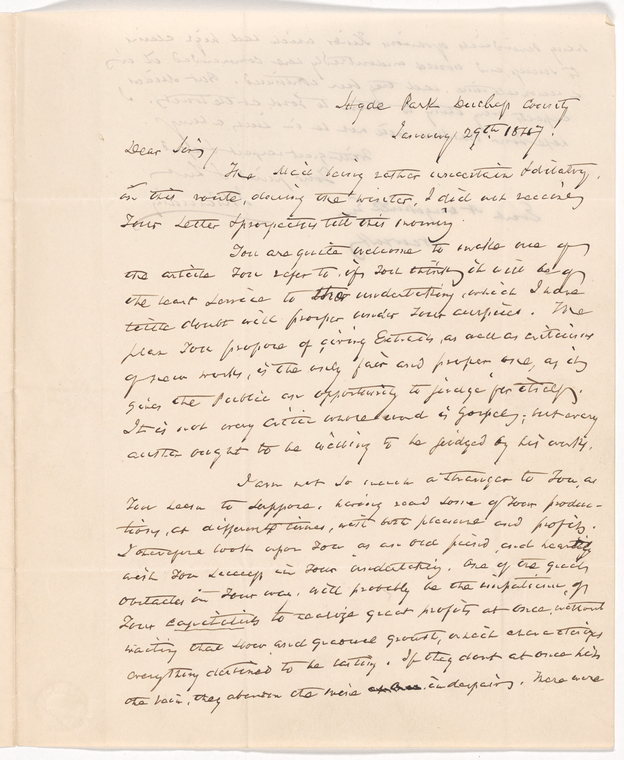 Hyde Park Duchess County
January 29th 1847.
Dear Sir,
The Mail being rather uncertain & dilatory,
on this route, during the winter, I did not receive
Your Letter & prospectus till this morning.
You are quite welcome to make use of
the article You refer to, if You think it will be of
the least service to Your undertaking, which I have
little doubt will prosper under Your auspices. The
plan You propose of giving Extracts, as well as criticisms
of new works, is the only fair and proper one, as it
gives the Public an opportunity to judge for itself.
It is not every critic whose word is Gospel; but every
author ought to be willing to be judged by his works.
I am not so much a stranger to You, as
You seem to suppose, having read some of Your produc-
tions, at different times, with both pleasure and profit.
I therefore look upon You as an old friend, and heartily
wish You success in Your undertaking. One of the great
obstacles in Your way, will probably be the impatience of
Your capitalists to realize great profits at once, without
waiting that slow and gradual growth, which characterizes
everything destined to be lasting. If they dont at once hit
the vein, they abandon the mine in despair. There were